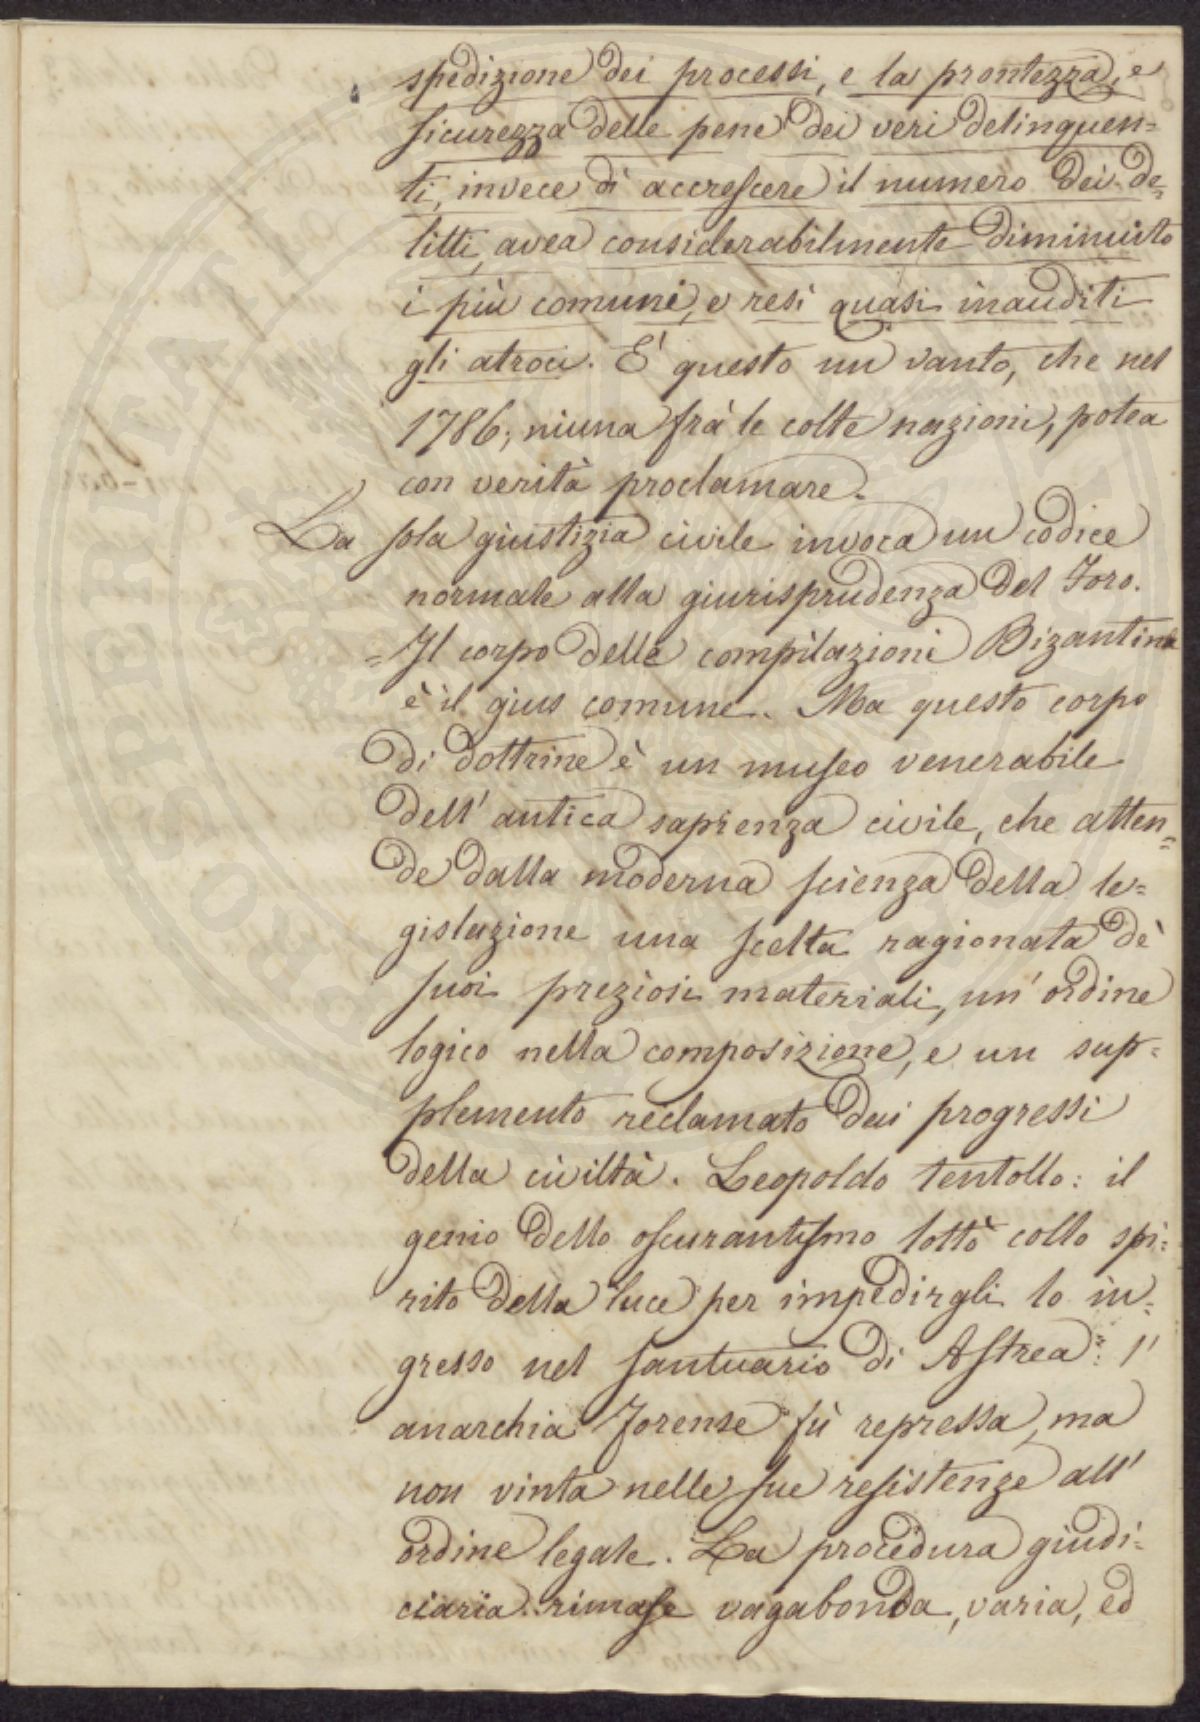 spedizione dei processi, e la prontezza, e
sicurezza delle pene dei veri delinquen=
ti, invece di accrescere il numero dei de=
litti, avea considerabilmente diminuito
i più comuni, e resi quasi inauditi
gli atroci. E' questo un vanto, che nel
1786, niuna frà le colte nazioni, potea
con verità proclamare.
La sola giustizia civile invoca un codice
normale alla giurisprudenza del Foro.
=Il corpo delle compilazioni Bizantine
è il gius comune. Ma questo corpo
di dottrine è un museo venerabile
dell' antica sapienza civile, che atten=
de dalla moderna scienza della le=
gislazione una scelta ragionata de'
suoi preziosi materiali, un' ordine
logico nella composizione, e un sup=
plemento reclamato dai progressi
della civiltà. Leopoldo tentollo: il
genio dello oscurantismo lottò collo spi=
rito della luce per impedirgli lo in=
gresso nel santuario di Astrea: l'
anarchia Forense fù repressa, ma
non vinta nelle sue resistenze all'
ordine legale. La procedura giudi=
ciaria rimase vagabonda, varia, ed
PROSPERITATI